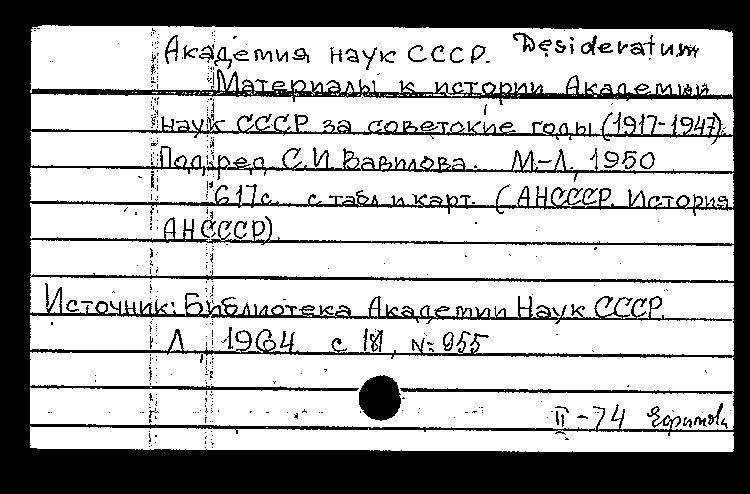 Академия наук СССР. Desideratum
Материалы к истории Академии
наук СССР за советские годы (1917-1947).
Под ред. С.И. Вавилова. М.-Л, 1950
617с. с табл и карт. (АНСССР. История
АНСССР).
Источник: Библиотека Академии Наук СССР.
Л, 1964 с 181, №955
II-74